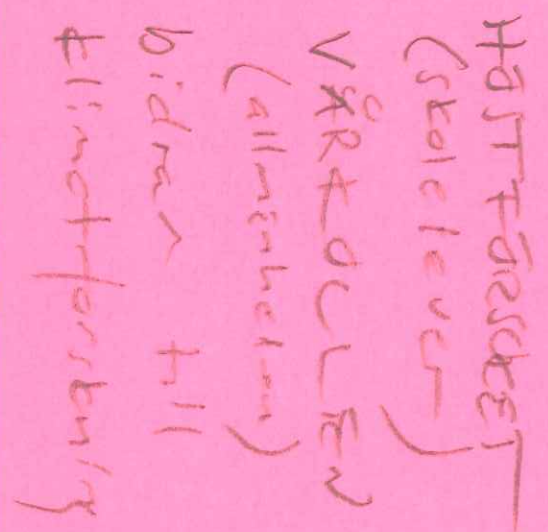 HÖSTFÖRSÖKET
(skolelever)
VÅRKOLLEN
(allmänheten)
bidrar till
klimatforskning